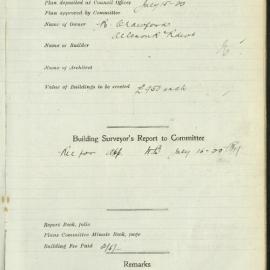 Plan deposited at Council Offices July 15-20
Plan approved by Committee
Name of Owner R. Crawford
Name of Builder
Name of Architect
Value of Buildings to be erected £950 each
Building Surveyor's Report to Committee
Rec for App. July 16-20
Report Book, folio
Plans Committee Minute Book, page
Building Fee Paid
Remarks